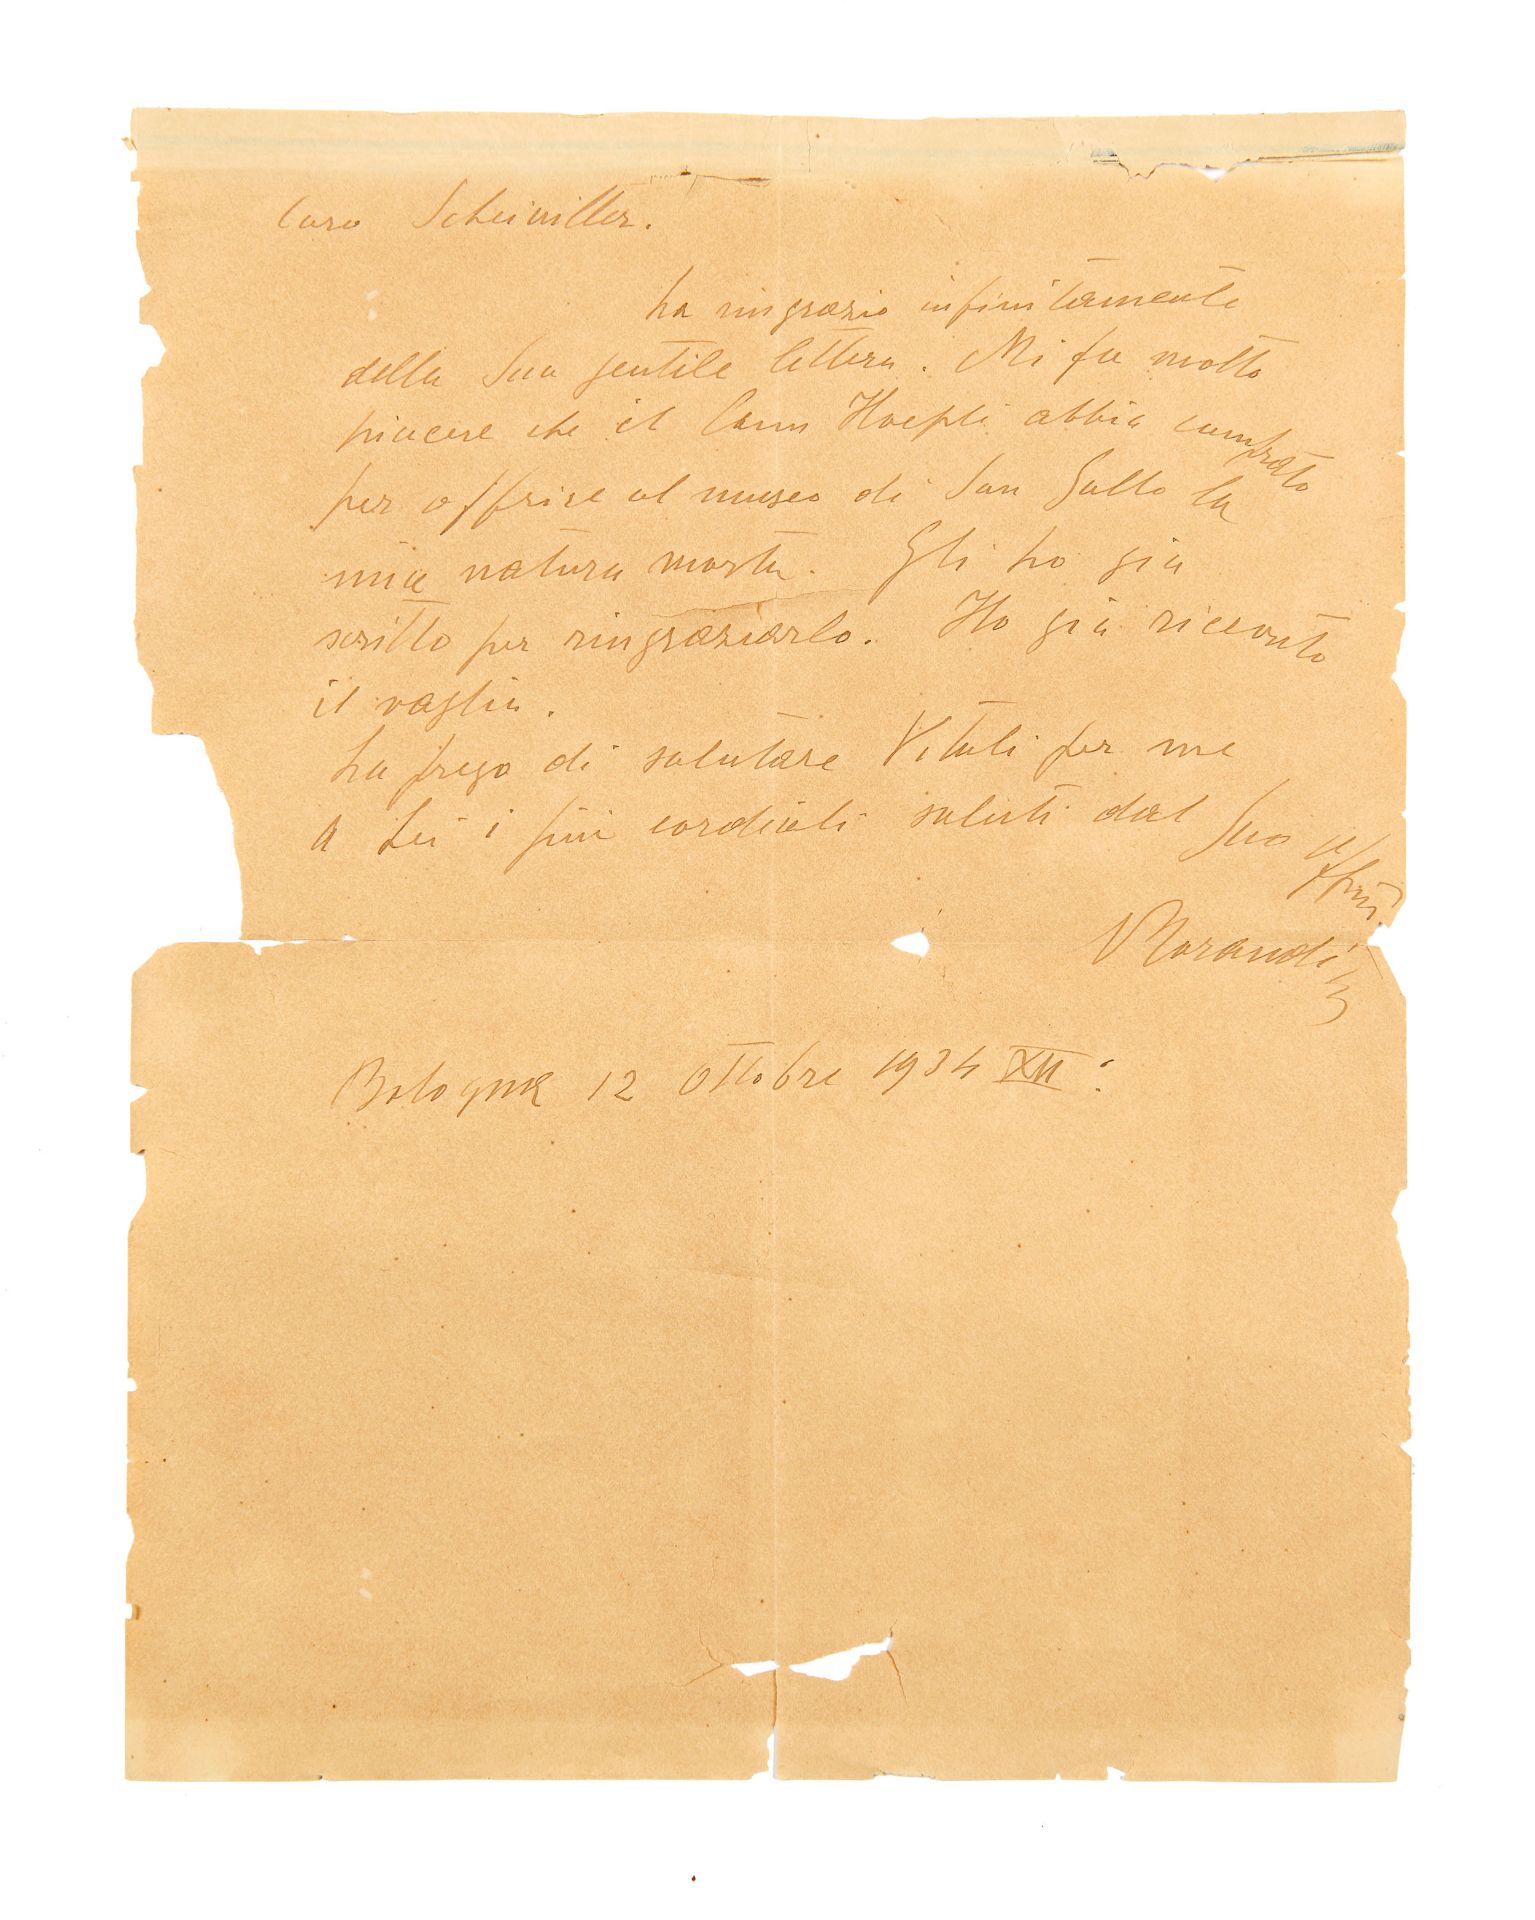 Caro Scheiwiller.
La ringrazio infinitamente
della Sua gentile lettera. Mi fa molto
piacere che il Comm Hoepli abbia comprato
per offrire al museo di San Gallo la
mia natura morta. Gli ho già
scritto per ringraziarlo. Ho già ricevuto
il vaglia.
La prego di salutare Vitali per me
A Lei i più cordiali saluti dal Suo
Morandi
Bologna 12 Ottobre 1934 XII: